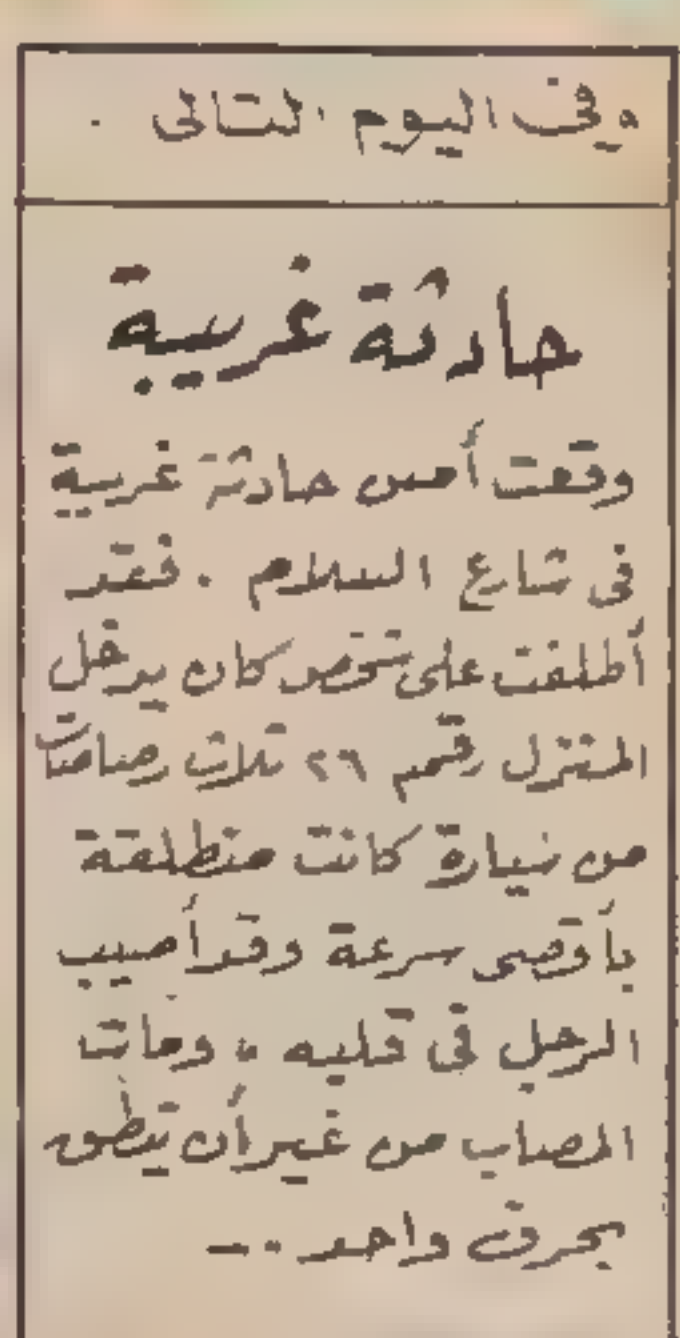 وفى اليوم التالى .
حادثة غريبة
وقعت أمس حادثة غريبة
فى شارع السلام . فقد
أطلقت على شخص كان يدخل
المنزل رقم ٢٦ ثلاث رصاصات
من سيارة كانت منطلقة
بأقصى سرعة وقد أصيب
الرجل فى قلبه . ومات
المصاب من غير أن ينطق
بحرف واحد . ـ